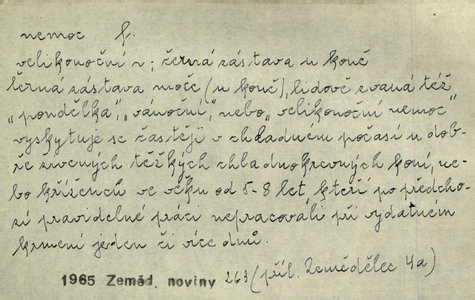 nemoc f.
velikonoční n.; černá zástava u koně
Černá zástava moče (u koně), lidově zvaná též
„pondělka“, „vánoční“, nebo „velikonoční nemoc“
vyskytuje se častěji v chladném počasí u dob-
ře živených těžkých chladnokrevných koní, ne-
bo kříženců ve věku od 5-8 let, kteří po předcho-
zí pravidelné práci nepracovali při vydatném
krmení jeden či více dnů.
1965 Zeměd. noviny 263 (příl. Zemědělec 4a)